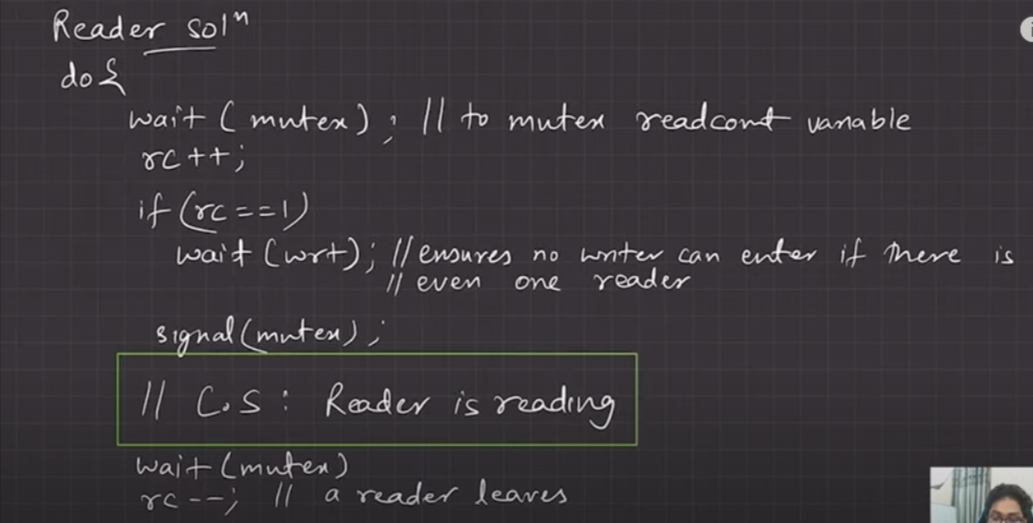 Reader solⁿ
do {
wait ( mutex ) ; // to mutex readcont variable
rc ++;
if (rc==1)
wait (wrt); // ensures no writer can enter if there is
// even one reader
signal(mutex);
// C.S : Reader is reading
wait (mutex)
rc --; // a reader leaves